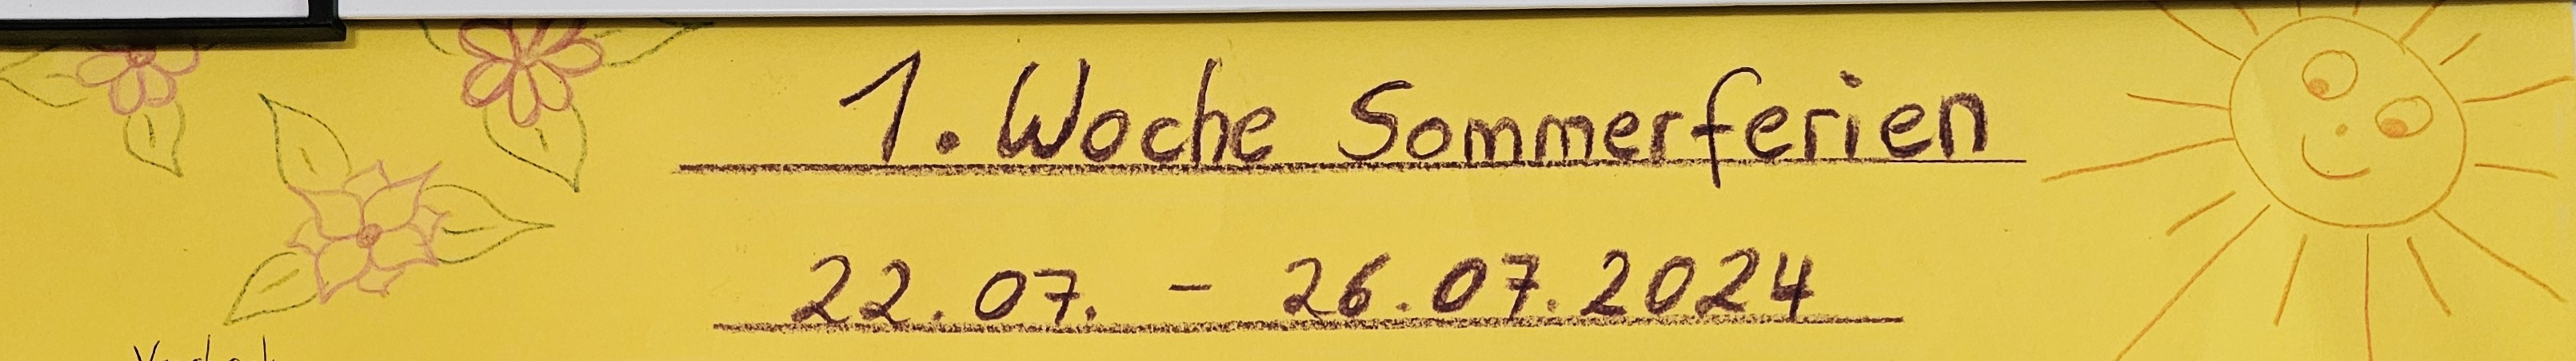 1. Woche Sommerferien
22.07. - 26.07.2024